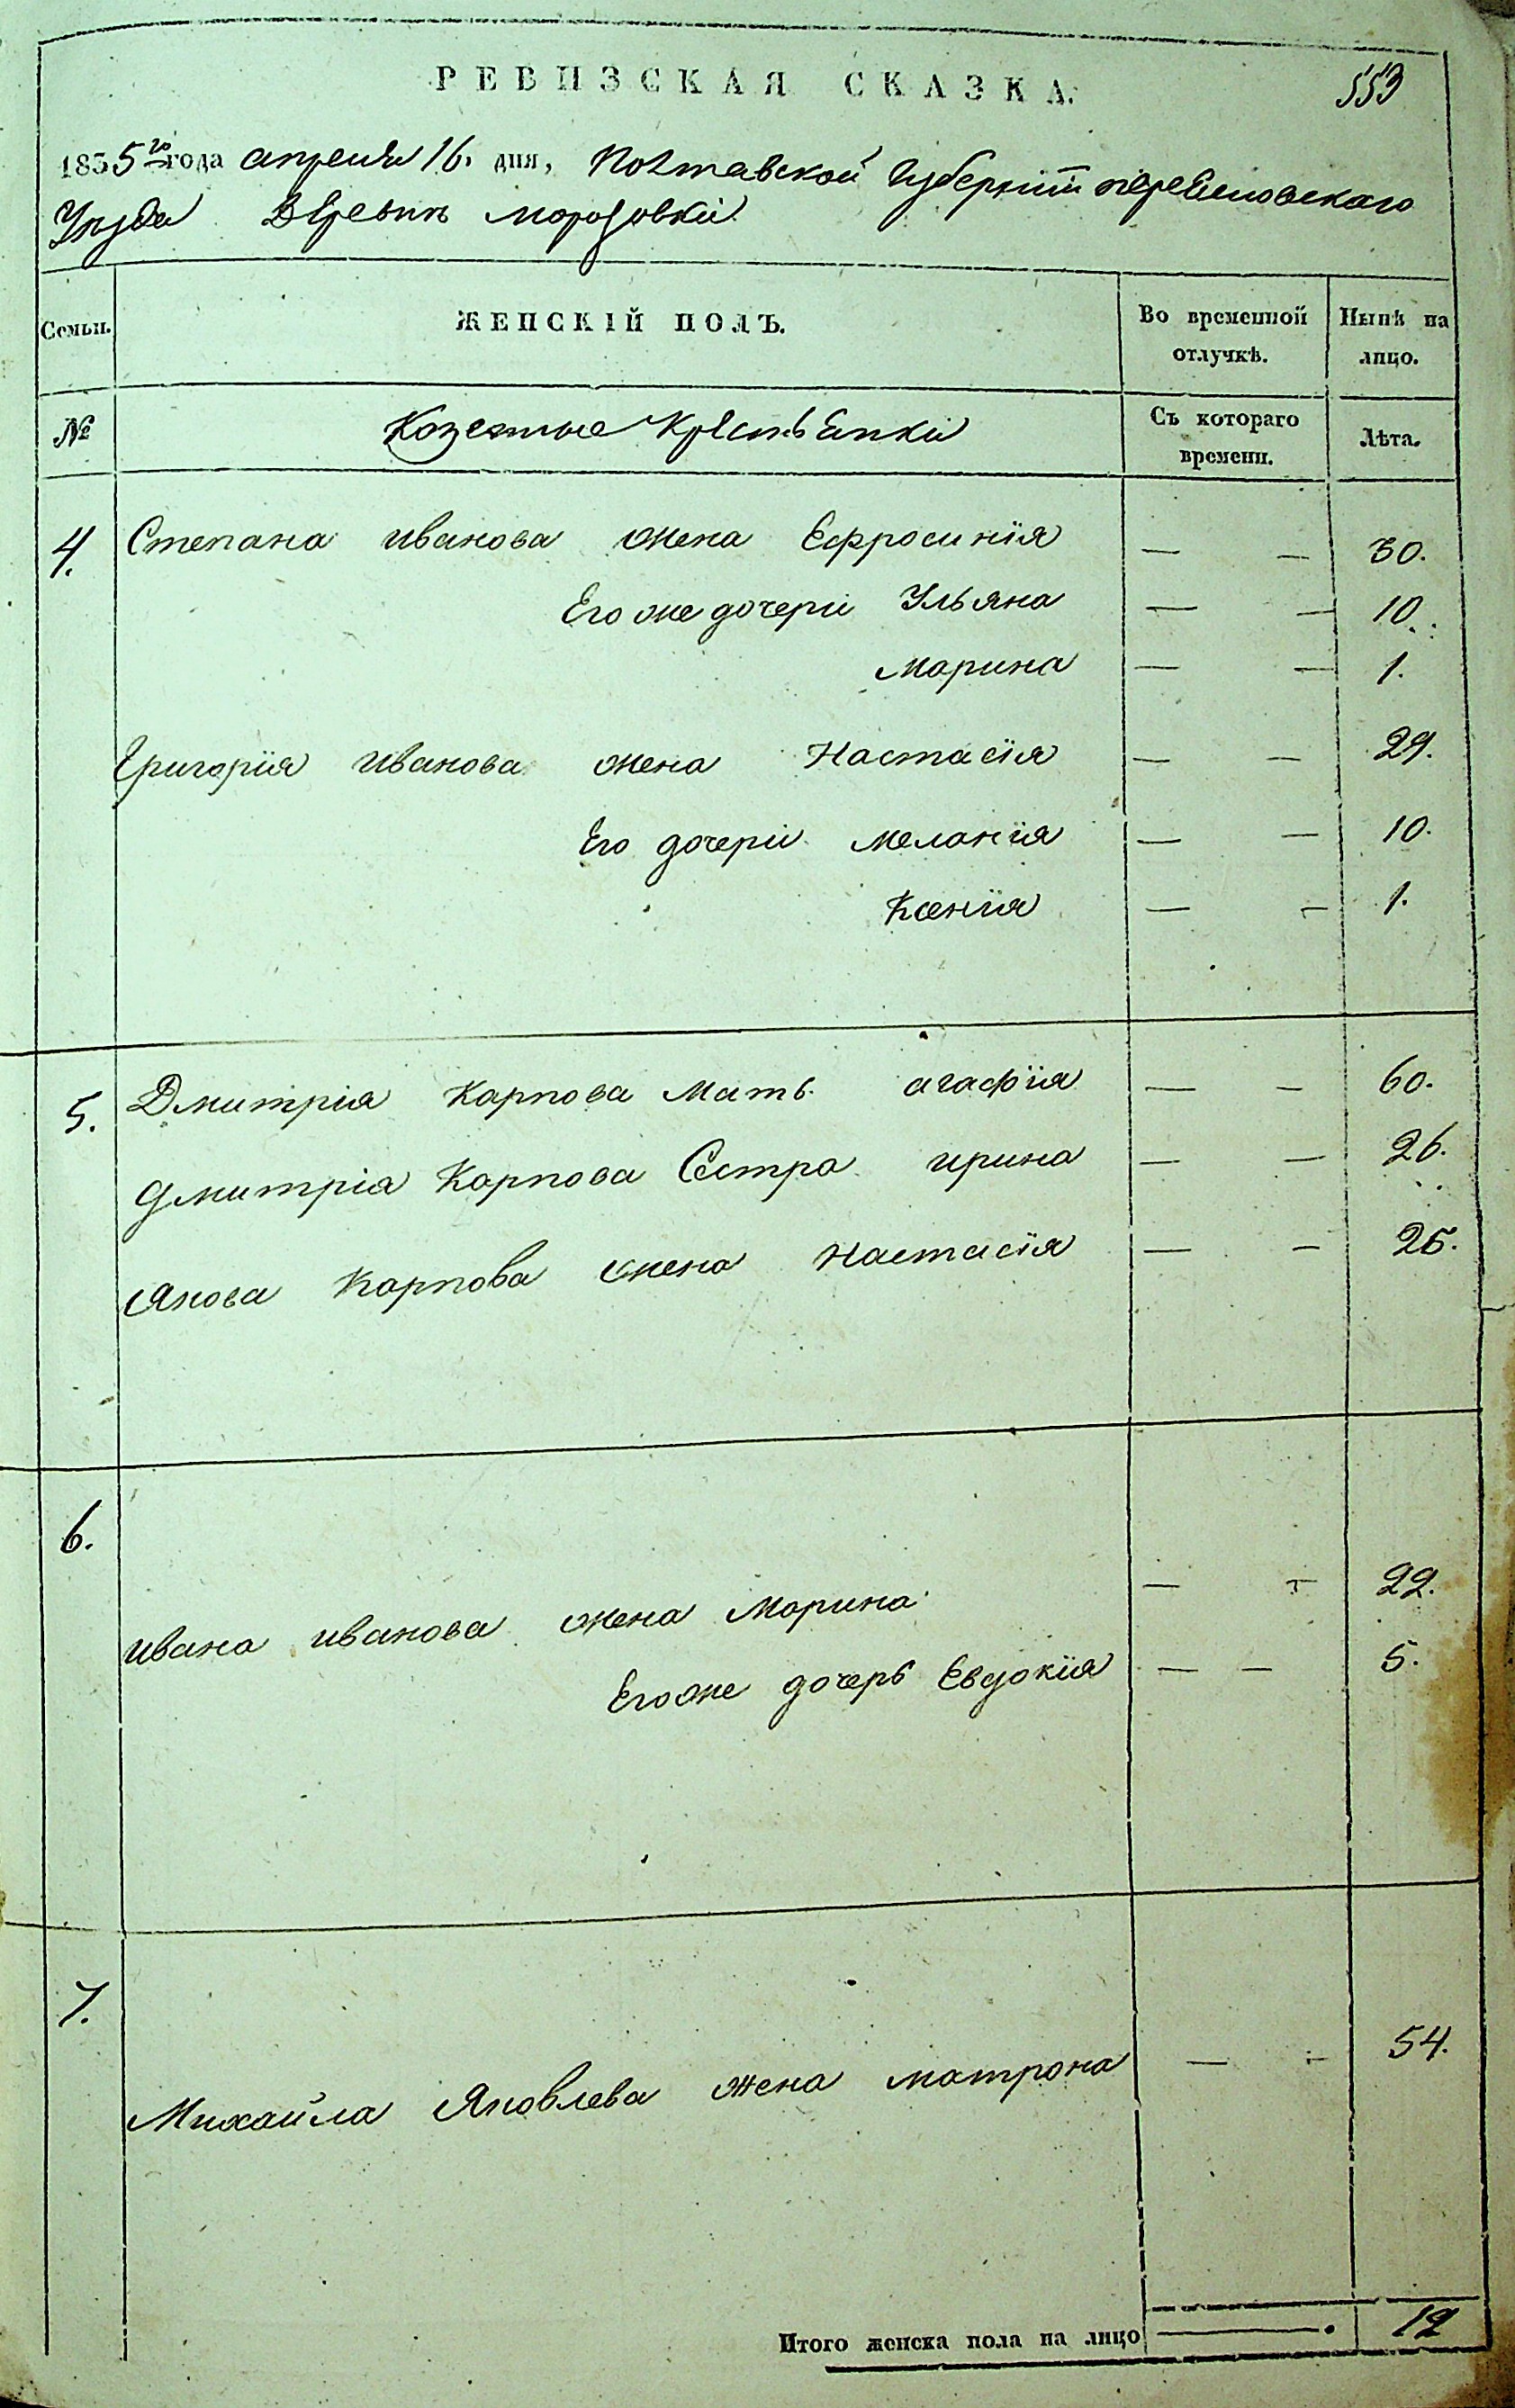 РЕВИЗСКАЯ СКАЗКА.
553
1835го года апреля 16. дня, Полтавской Губернiи переяславскаго
Уезда Деревни морозовки
Семьи.
ЖЕНСКІЙ ПОЛЪ.
Во временной отлучкѣ.
Нынѣ на лицо.
№
Козенные Крестьянки
Съ котораго времени.
Лѣта.
4. Степана иванова жена Ефросинiя — — 30.
Его же дочери Ульяна — — 10.
Марина — — 1.
Григорiя иванова жена Настасiя — — 29.
Его дочери меланiя — — 10.
Ксенiя — — 1.
5. Дмитрiя Карпова Мать агафiя — — 60.
Дмитрiя Карпова Сестра ирина — — 26.
Якова Карпова жена Настасiя — — 25.
6.
ивана иванова жена Марина — — 22.
Его же дочерь Евдокiя — — 5.
7.
Михайла Яковлева жена матрона — — 54.
Итого женска пола на лицо — 12